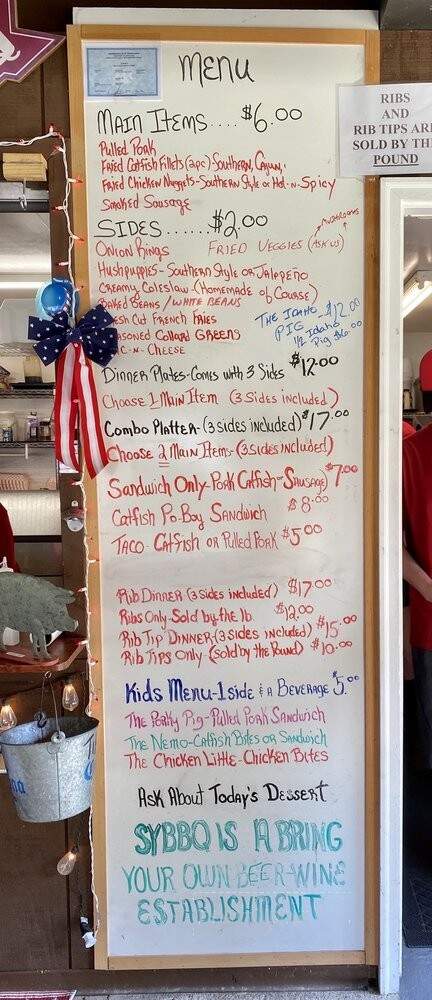 MENU
MAIN ITEMS.... $6.00
Pulled Pork
Fried Catfish Fillets (2pc) - Southern, Cajun,
Fried Chicken Nuggets - Southern Style or Hot-n-Spicy
Smoked Sausage
SIDES......$2.00
ONION RINGS
FRIED VEGGIES (ASK US)
MUSHROOMS
Hushpuppies - Southern Style or Jalapeño
Creamy Coleslaw - (Homemade of Course)
BAKED BEANS / WHITE BEANS
esh Cut FRENCH FRIES
asoned Collard GREENS
c-n-CHEESE
THE IDAHO $12.00
PIG
1/2 Idaho
Pig $6.00
DINNER PLATES - Comes with 3 Sides $12.00
Choose 1 Main Item (3 Sides included)
Combo Platter - (3 sides included) $17.00
Choose 2 Main Items - (3 Sides included)
Sandwich Only - Pork Catfish - Sausage) $7.00
Catfish Po-Boy Sandwich $8.00
TACO - Catfish or Pulled Pork $5.00
Rib Dinner (3 Sides included) $17.00
Ribs Only - Sold by the lb $12.00
Rib Tip Dinner, (3 Sides included) $15.00
Rib Tips Only - (Sold by the Pound) $10.00
Kids Menu - 1 side & a Beverage $5.00
The Porky Pig - Pulled Pork Sandwich
The Nemo - Catfish Bites or Sandwich
The Chicken Little - Chicken Bites
Ask About Today's DESSERT
SYBBQ IS A BRING
YOUR OWN BEER-WINE
ESTABLISHMENT
RIBS
AND
RIB TIPS AR
SOLD BY THE
POUND